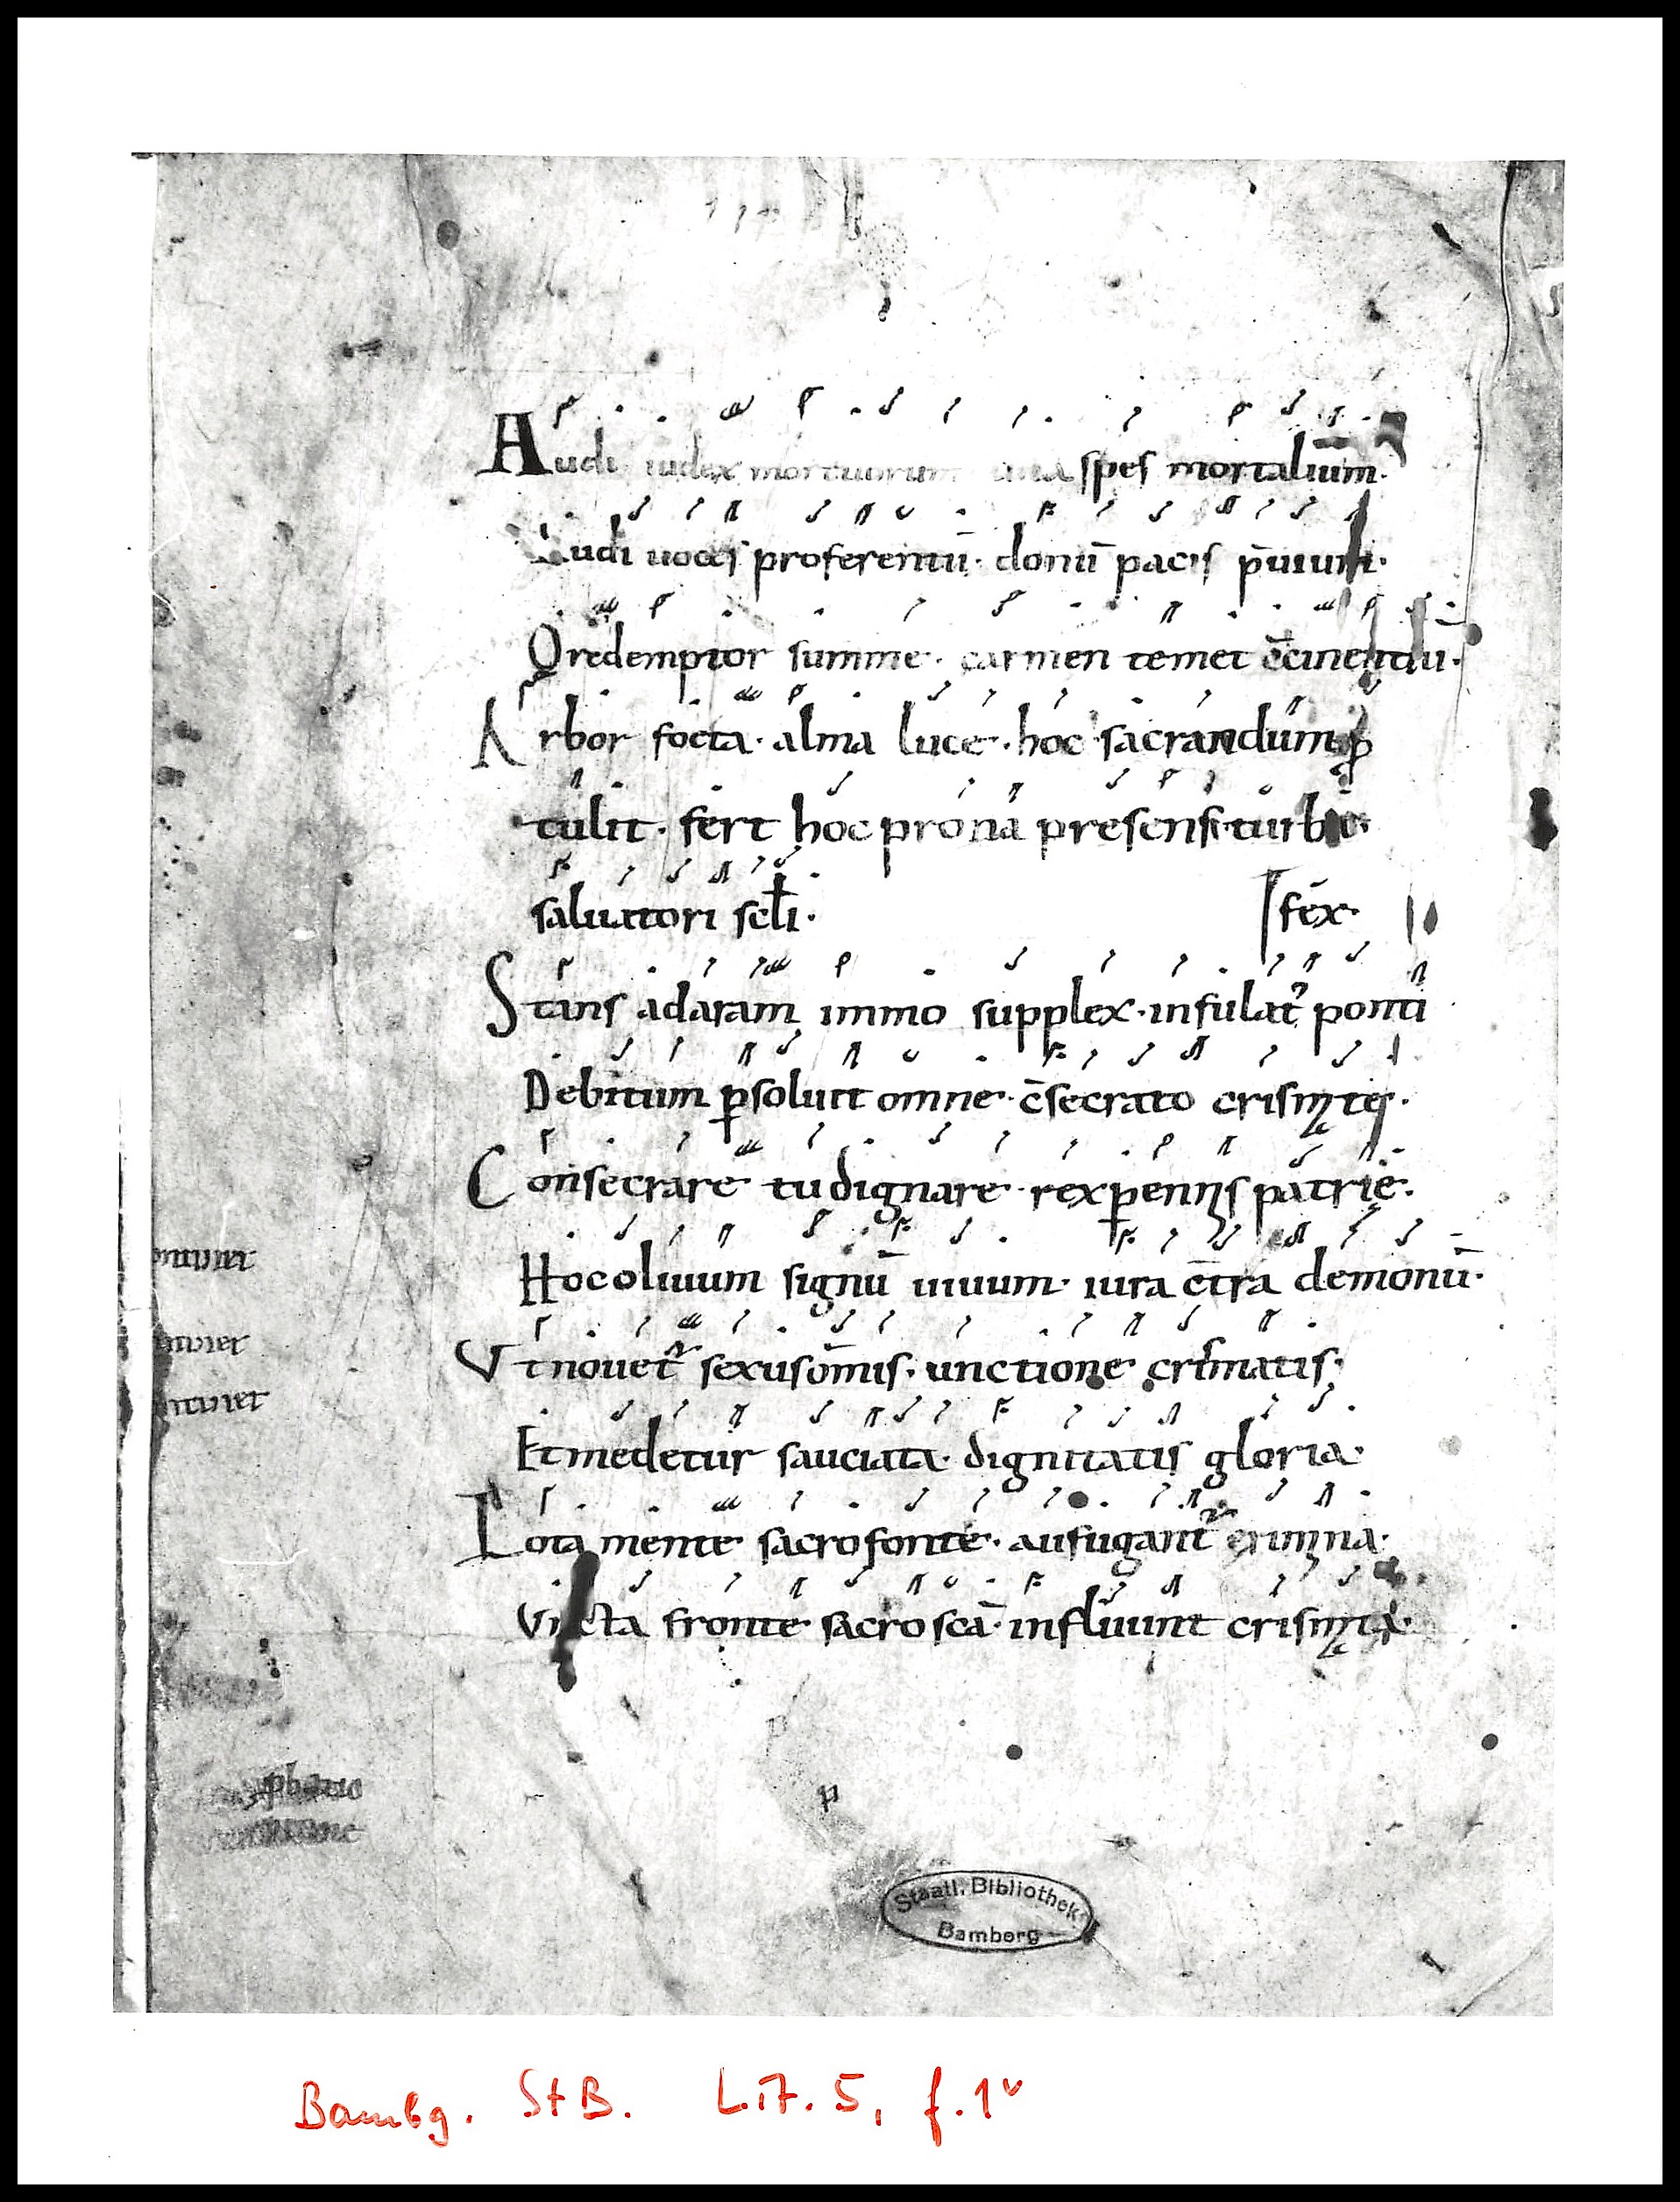 Audi iudex mortuorum una spes mortaliūm.
Audi uoces proferentū. donū pacis p̄uium.
O redemptor summe. carmen temet c̄cinentiū.
Arbor foeta. alma luce. hoc sacrandum ꝑ
tulit. fert hoc prona presens turba.
saluatori scłi.
fex.
Stans ad aram immo supplex. infulat᾿ ponti
Debitum ꝑsoluit omne. c̄secrato crismate.
Consecrare tu dignare. rex ꝑennis patrie.
Hoc oliuum signū uiuum. iura c̄tra demonū.
Ut nouet᷑ sexus om̄is. unctione crismatis.
Et medetur sauciata. dignitatis gloria.
Lota mente sacro fonte. aufugant᷑ crimina.
Uncta fronte sacrosc̄a. influunt crismata.
ntur et
phano
p
Staatl. Bibliothek
Bamberg
Bambg. StB. Lit. 5, f. 1ᵛ